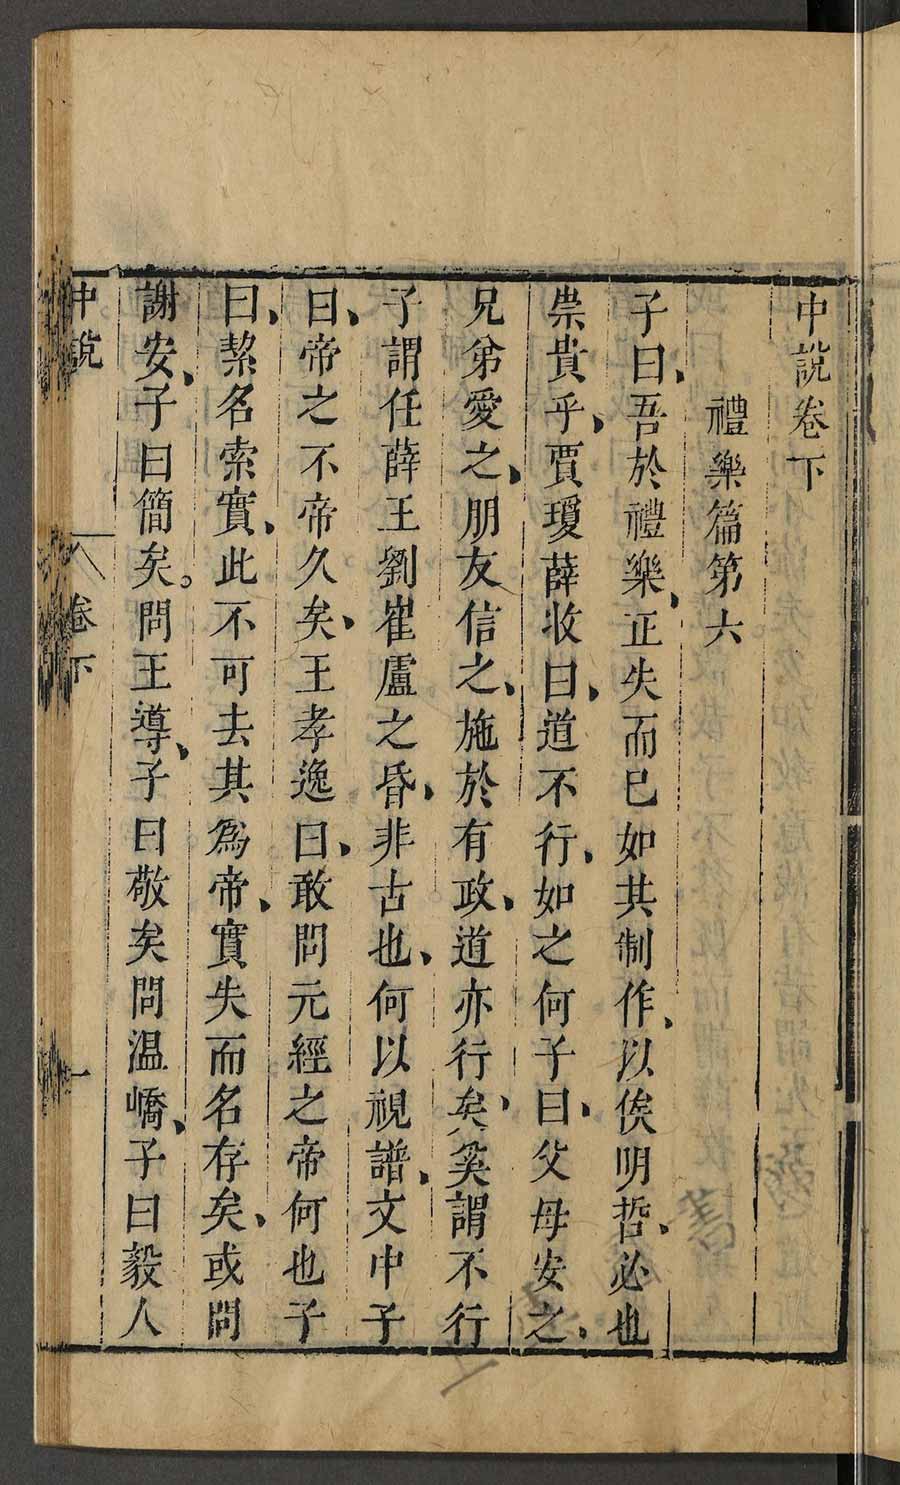 中說卷下
禮樂篇第六
子曰、吾於禮樂、正失而已如其制作、以俟明哲、必也
崇貴乎、賈瓊薛收曰、道不行、如之何子曰、父母安之、
兄弟愛之、朋友信之、施於有政、道亦行矣、奚謂不行
子謂任薛王劉崔盧之昏、非古也、何以視譜、文中子
曰、帝之不帝久矣、王孝逸曰、敢問元經之帝何也子
曰、絜名索實、此不可去其爲帝、實失而名存矣、或問
謝安、子曰簡矣。問王導、子曰敬矣問温嶠、子曰毅人
中說
卷下
一